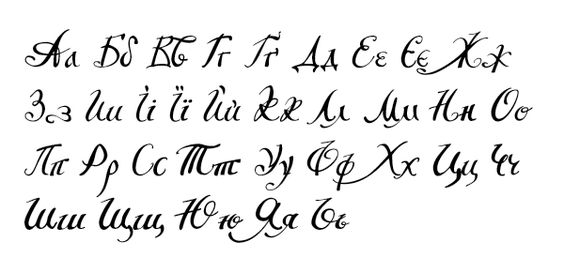 Аа Бб Вв Гг Ґґ Дд Ее Єє Жж
Зз Ии Іі Її Йй Кк Лл Мм Нн Оо
Пп Рр Сс Тт Уу Фф Хх Цц Чч
Шш Щщ Юю Яя Ьь